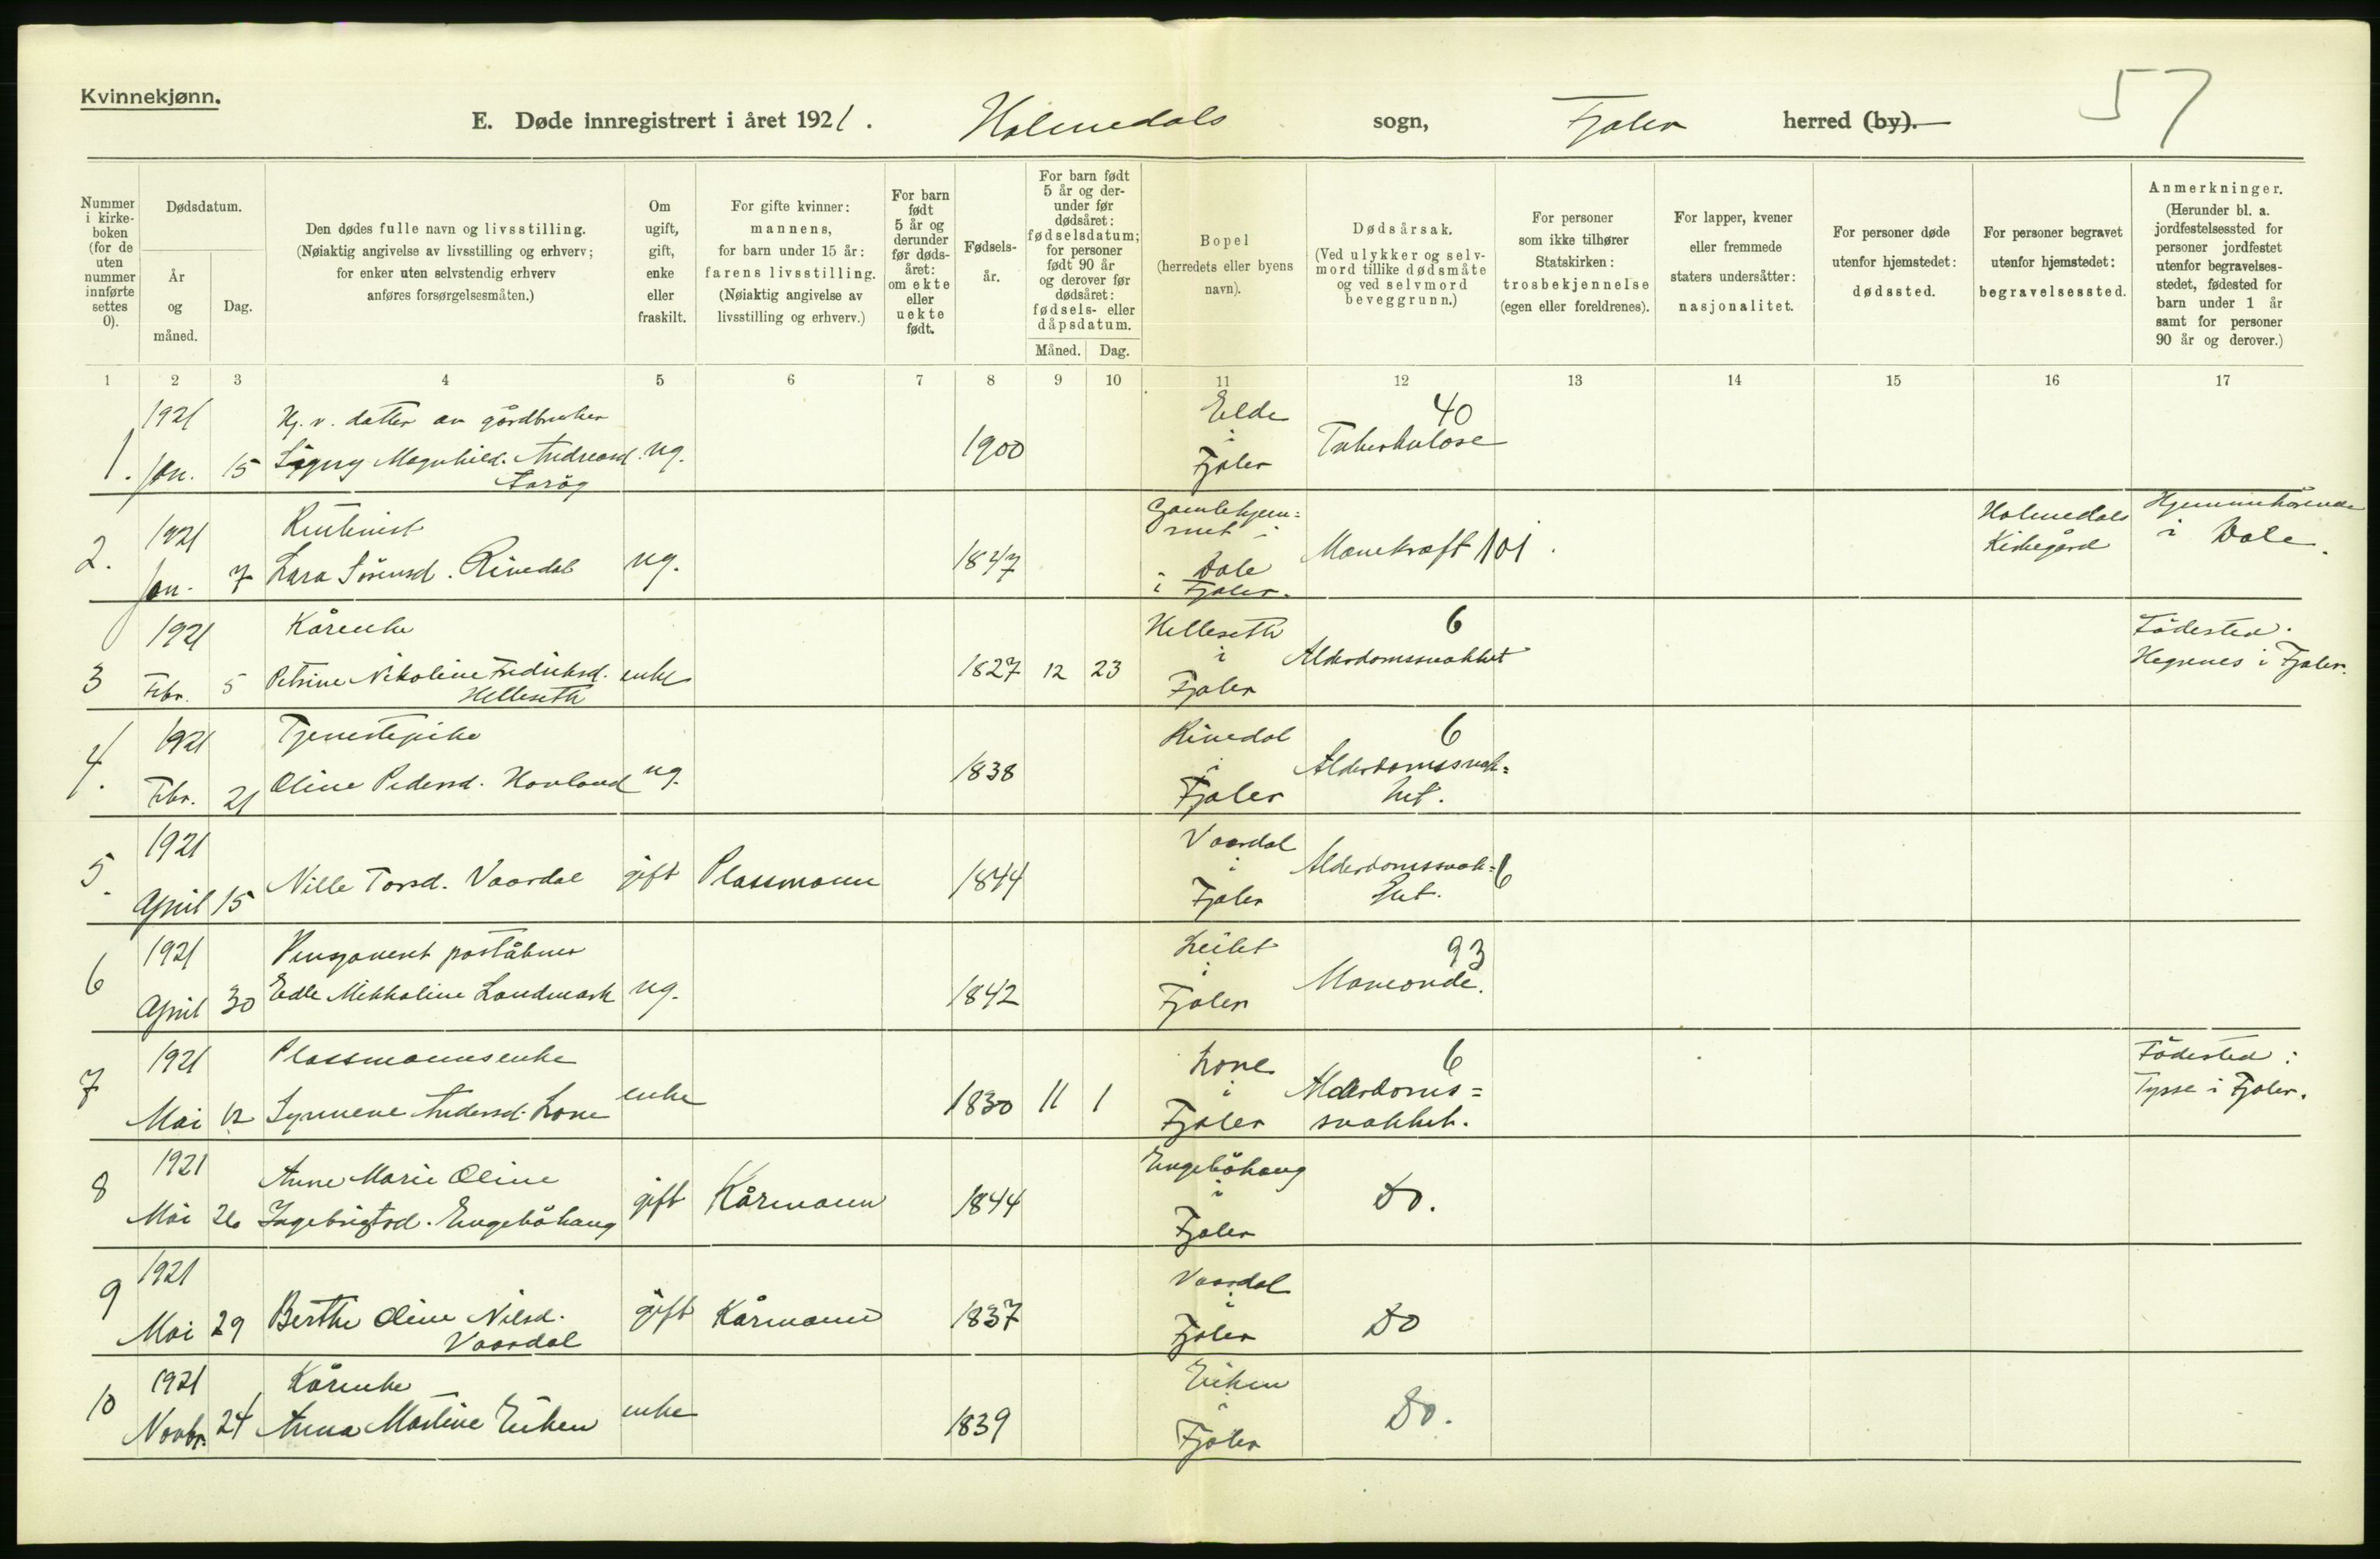 Kvinnekjønn.
57
E. Døde innregistrert i året 1921. Holmedals sogn, Fjaler herred (by).
Nummer i kirkeboken (for de uten nummer innførte settes 0).
Dødsdatum.
År og måned.
Dag.
Den dødes fulle navn og livsstilling. (Nøiaktig angivelse av livsstilling og erhverv; for enker uten selvstendig erhverv anføres forsørgelsesmåten.)
Om ugift, gift, enke eller fraskilt.
For gifte kvinner: mannens, for barn under 15 år: farens livsstilling. (Nøiaktig angivelse av livsstilling og erhverv.)
For barn født 5 år og derunder før dødsåret: om ekte eller uekte født.
Fødselsår.
For barn født 5 år og derunder før dødsåret: fødselsdatum; for personer født 90 år og derover før dødsåret: fødsels- eller dåpsdatum.
Måned. Dag.
Bopel (herredets eller byens navn).
Dødsårsak. (Ved ulykker og selvmord tillike dødsmåte og ved selvmord beveggrunn.)
For personer som ikke tilhører Statskirken: trosbekjennelse (egen eller foreldrenes).
For lapper, kvener eller fremmede staters undersåtter: nasjonalitet.
For personer døde utenfor hjemstedet: dødssted.
For personer begravet utenfor hjemstedet: begravelsessted.
Anmerkninger. (Herunder bl. a. jordfestelsessted for personer jordfestet utenfor begravelsesstedet, fødested for barn under 1 år samt for personer 90 år og derover.)
1 2 3 4 5 6 7 8 9 10 11 12 13 14 15 16 17
1. 1921 Jan. 15 Hj. v. datter av gårdbruker Signy Magnhild Andreasd. ug. 1900 Elde i Fjaler Tuberkulose 40
2. 1921 Jan. 7 Lara Sörensd. Rivedal ug. 1847 Gamlehjem=met i Dale i Fjaler. Manekraft 101. Holmedals Kirkegård Hjemmehörende i Dale.
3 1921 Febr. 5 Kårenke Petrine Nikoline Fredriksd. Helleseth enke 1827 12 23 Helleseth i Fjaler Alderdomssvakhet 6 Födested. Hegrenes i Fjaler.
4. 1921 Febr. 21 Tjenestepike Oline Pedersd. Hovland ug. 1838 Rivedal i Fjaler Alderdomssvak=het. 6
5. 1921 April 15 Nille Torsd. Vaardal gift Plassmann 1844 Vaardal i Fjaler Alderdomssvak=het. 6
6 1921 April 30 Pensjonert poståbner Edle Mikkoline Landmark ug. 1842 Leilet i Fjaler 93
7 1921 Mai 12 Plassmannsenke Synneve Andersd. Lone enke 1830 11 1 Lone i Fjaler Alderdoms=svakhet. 6 Födested: Tysse i Fjaler.
8 1921 Mai 26 Anne Marie Oline Ingebrigtsd. Engeböhaug gift Kårmann 1844 Engeböhaug i Fjaler Do.
9 1921 Mai 29 Berthe Oline Nilsd. Vaardal gift Kårmann 1837 Vaardal i Fjaler Do
10 1921 Novbr. 24 Kårenke Anna Martine Eiken enke 1839 Eiken i Fjaler Do.